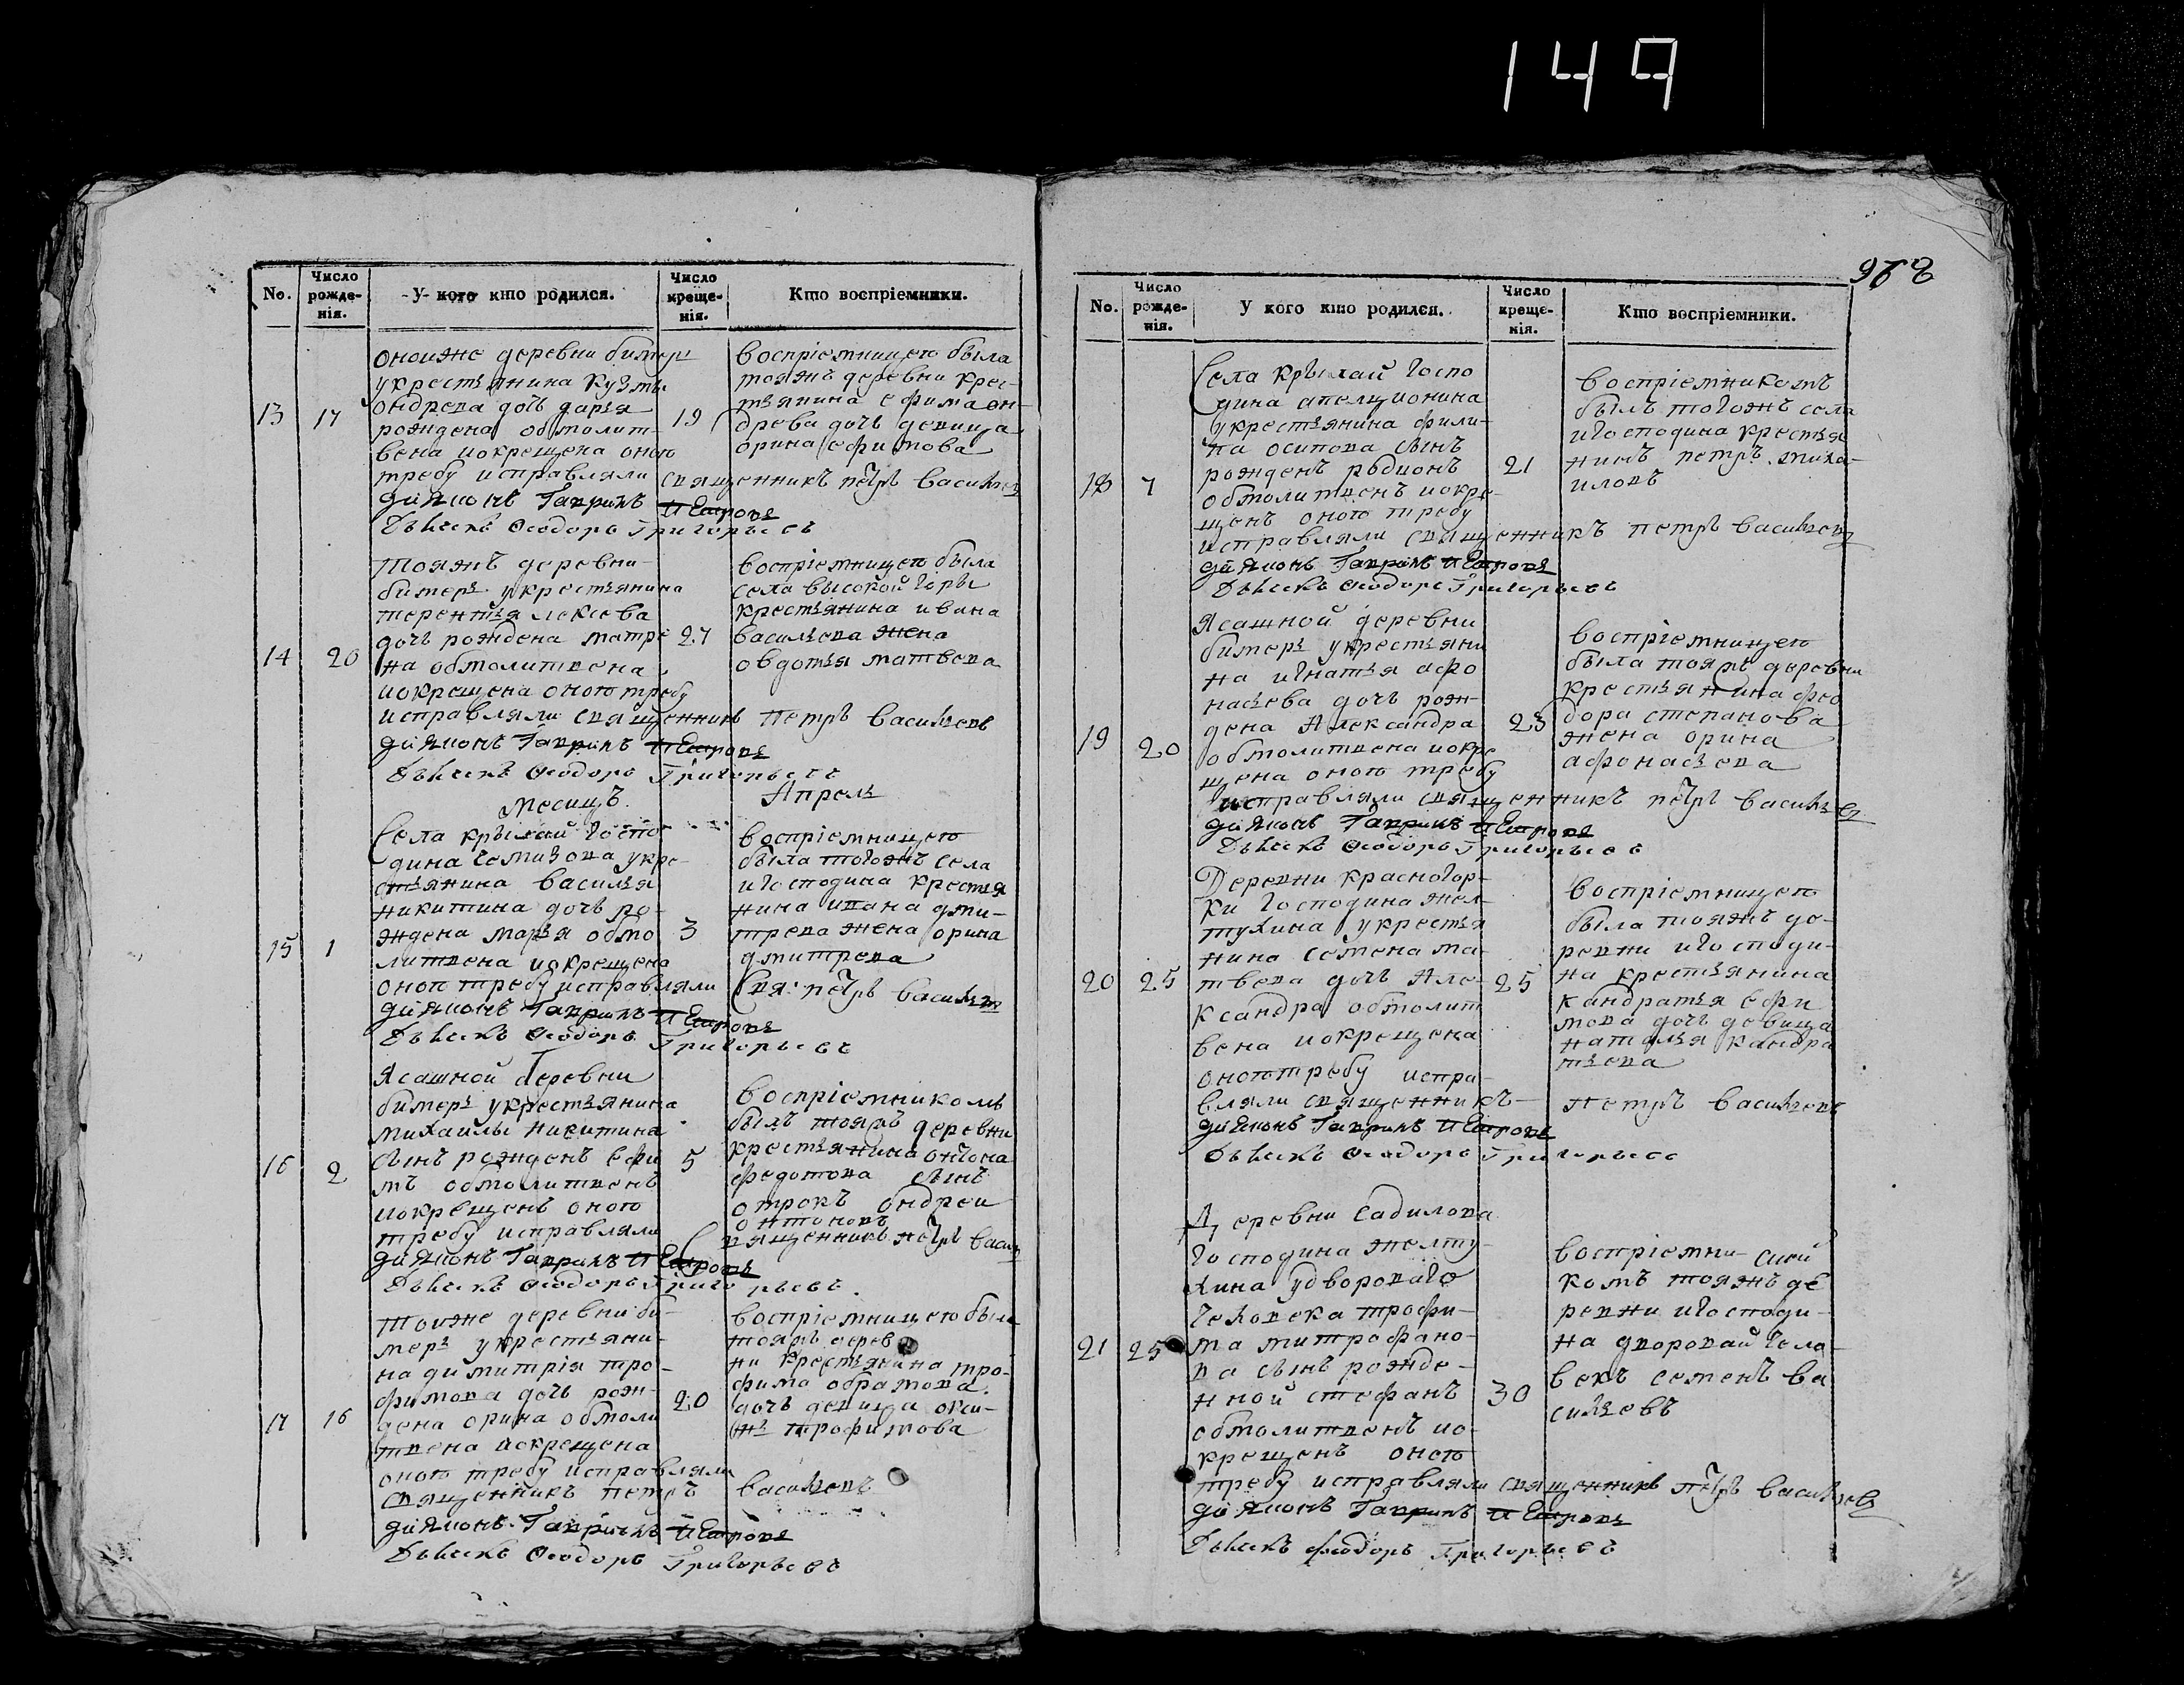 149
No.
Число рожде-нія.
У кого кто родился.
Число креще-нія.
Кто воспріемники.
оноиже деревни бимерь
укрестьянина Кузмы
13 17 ондрева дочь дарья 19
рождена обмолит-
вена иокрещена оною
требу исправляли священникъ петръ васильев
дияконъ Гаврилъ Петровъ
Дьячекъ Феодоръ Григорьевъ
воспріемницею была
тояжъ деревни крес-
тьянина ефима он-
древа дочь девица
орина ефимова
тояжъ деревни
бимерь укрестьянина
терентья лексева
дочь рождена матре 27
14 20 на обмолитвена
иокрещена оною требу
исправляли священникъ петръ васильевъ
дияконъ Гаврилъ Петровъ
Дьячекъ Феодоръ Григорьевъ
воспріемницею была
села высокой горы
крестьянина ивана
васильева жена
овдотья матвева
месицъ Апрель
Села крылай госпо
дина укре-
стьянина василья
никитина дочь ро-
15 1 ждена марья обмо 3
литвена иокрещена
оною требу исправляли Свя: петръ васильев
дияконъ Гаврилъ Петровъ
Дьячекъ Феодоръ Григорьевъ
воспріемницею
была тогожъ села
игосподина крестья
нина ивана дми-
трева жена орина
дмитрева
Ясашной деревни
бимерь укрестьянина
михаилы никитина
16 2 сынъ рожденъ ефи 5
мъ обмолитвенъ
иокрещенъ оною
требу исправляли Священникъ петръ васил
дияконъ Гаврилъ Петровъ
Дьячекъ Феодоръ Григорьевъ
воспріемникомъ
былъ тояжъ деревни
крестьянина онтона
федотова сынъ
отрокъ ондреи
онтоновъ
тоиже деревни би-
мерь укрестьяни-
на димитрія тро-
фимова дочь рож- 20
17 16 дена орина обмоли
твена иокрещена
оною требу исправляли
священникъ петръ васильевъ
дияконъ Гаврилъ Петровъ
Дьячекъ Феодоръ Григорьевъ
воспріемницею была
тояжъ дерев
ни крестьянина тро-
фима обрамова
дочь девица
трофимова
No.
Число рожде-нія.
У кого кто родился.
Число креще-нія.
Кто воспріемники.
Села крылай госпо
дина
укрестьянина фили-
па осипова сынъ
рожденъ родионъ 21
18 7 обмолитвенъ иокре-
щенъ оною требу
исправляли священникъ петръ васильевъ
дияконъ Гаврилъ Петровъ
Дьячекъ Феодоръ Григорьевъ
воспріемникомъ
былъ тогожъ села
игосподина крестья
нинъ петръ миха-
иловъ
Ясашной деревни
бимерь укрестьяни
на игнатья афо
насьева дочь рож-
дена Александра 23
19 20 обмолитвена иокре
щена оною требу
исправляли священникъ петръ васильев
дияконъ Гаврилъ Петровъ
Дьячекъ Феодоръ Григорьевъ
воспріемницею
была тояжъ деревни
крестьянина фео
дора степанова
жена орина
афонасьева
Деревни красногор-
ки господина жел-
тухина укрестья
нина семена ма-
20 25 твева дочь Але- 25
ксандра обмолит
вена иокрещена
оною требу испра-
вляли священникъ петръ васильевъ
дияконъ Гаврилъ Петровъ
Дьячекъ Феодоръ Григорьевъ
воспріемницею
была тояжъ де-
ревни игосподи-
на крестьянина
кандратья ефи
мова дочь девица
наталья кандра
тьева
Деревни Садилова
господина желту-
хина удворового
человека трофи-
21 25 ма митрофано-
ва сынъ рожде-
нной стефанъ 30
обмолитвенъ ио-
крещенъ оною
требу исправляли священникъ петръ васильев
дияконъ Гаврилъ Петровъ
Дьячекъ феодоръ Григорьевъ
воспріемни-
комъ тояжъ де
ревни игосподи-
на дворовай чело-
векъ семенъ ва
сильевъ